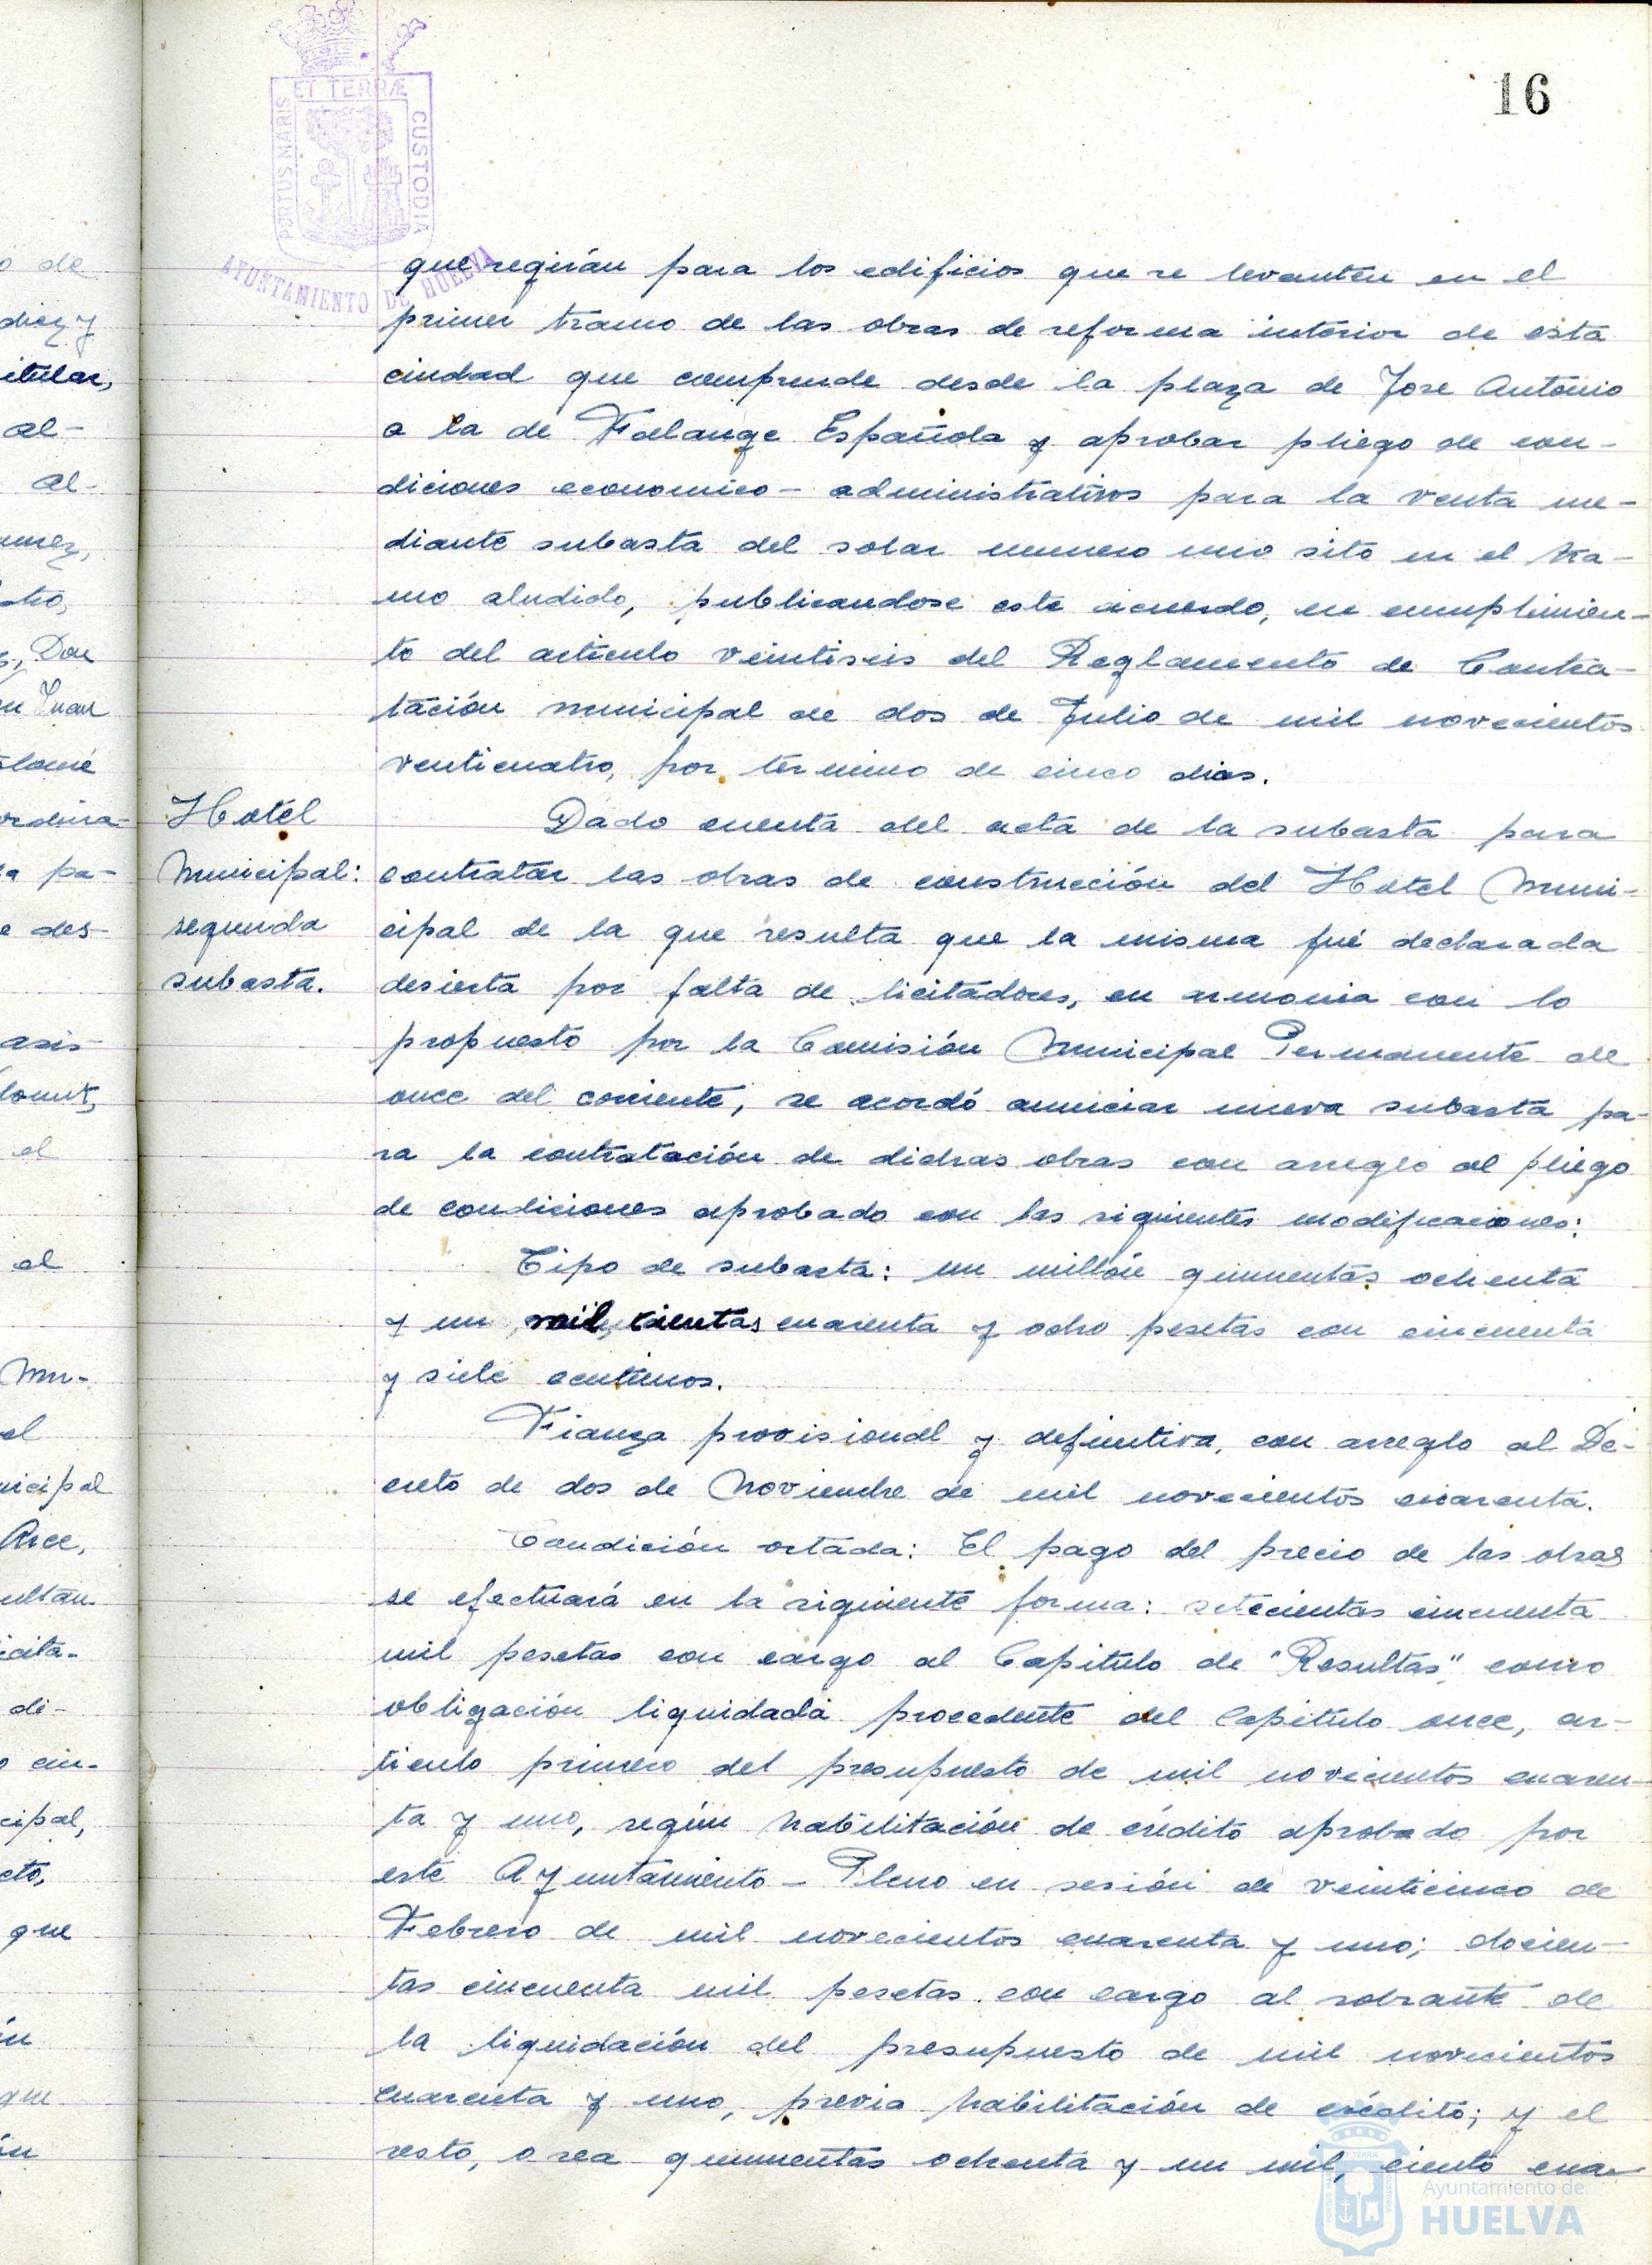 16
PORTUS MARIS ET TERRÆ CUSTODIA
AYUNTAMIENTO DE HUELVA
que regirán para los edificios que se levanten en el
primer tramo de las obras de reforma interior de esta
ciudad que comprende desde la plaza de Jose Antonio
a la de Falange Española y aprobar pliego de con-
diciones economico-administrativos para la venta me-
diante subasta del solar numero uno sito en el tra-
mo aludido, publicandose este acuerdo, en cumplimien-
to del articulo veintiseis del Reglamento de Contra-
tación municipal de dos de Julio de mil novecientos
venticuatro, por termino de cinco dias.
Hotel
Municipal:
segunda
subasta.
Dado cuenta del acta de la subasta para
contratar las obras de construcción del Hotel Muni-
cipal de la que resulta que la misma fué declarada
desierta por falta de licitadores, en armonia con lo
propuesto por la Comisión Municipal Permanente de
once del corriente, se acordó anunciar nueva subasta pa-
ra la contratación de dichas obras con arreglo al pliego
de condiciones aprobado con las siguientes modificaciones:
Tipo de subasta: un millón quinientas ochenta
y un mil cientas cuarenta y ocho pesetas con cincuenta
y siete centimos.
Fianza provisional y definitiva, con arreglo al De-
creto de dos de Noviembre de mil novecientos cuarenta.
Condición octada: El pago del precio de las obras
se efectuará en la siguiente forma: setecientas cincuenta
mil pesetas con cargo al Capitulo de "Resultas", como
obligación liquidada procedente del Capitulo once, ar-
ticulo primero del presupuesto de mil novecientos cuaren-
ta y uno, según habilitación de crédito aprobado por
este Ayuntamiento-Pleno en sesión de veinticinco de
Febrero de mil novecientos cuarenta y uno; docien-
tas cincuenta mil pesetas con cargo al sobrante de
la liquidación del presupuesto de mil novecientos
cuarenta y uno, previa habilitación de crédito; y el
resto, o sea quinientas ochenta y un mil, ciento cua-
Ayuntamiento de
HUELVA